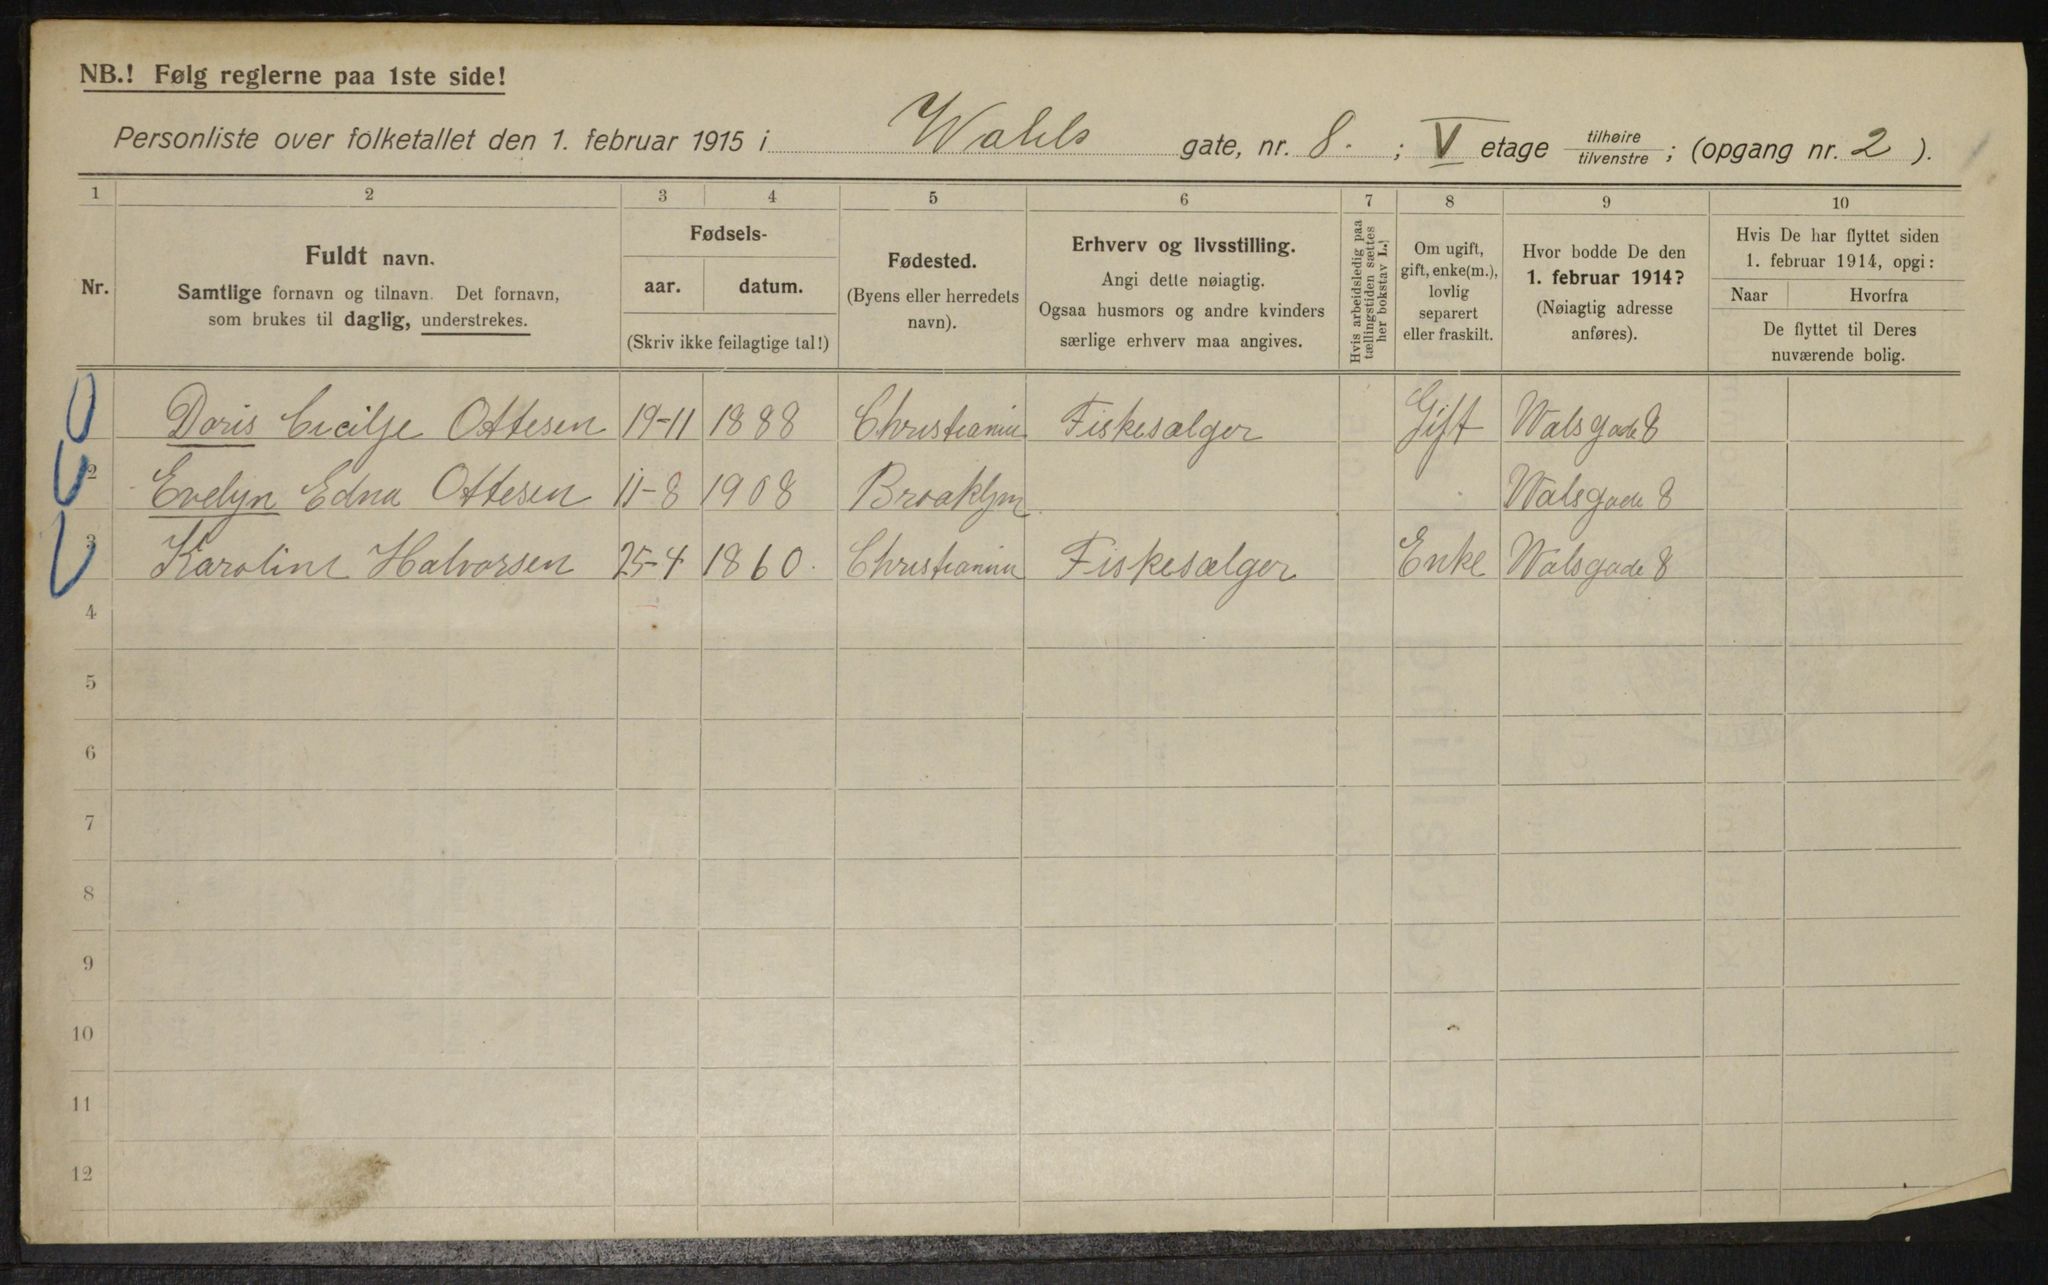 NB.! Følg reglerne paa 1ste side!
Personliste over folketallet den 1. februar 1915 i Wahls gate, nr. 8. ; V etage tilhøire/tilvenstre ; (opgang nr. 2 ).
1 2 3 4 5 6 7 8 9 10
Nr.
Fuldt navn.
Samtlige fornavn og tilnavn. Det fornavn,
som brukes til daglig, understrekes.
Fødsels-
aar. datum.
(Skriv ikke feilagtige tal!)
Fødested.
(Byens eller herredets
navn).
Erhverv og livsstilling.
Angi dette nøiagtig.
Ogsaa husmors og andre kvinders
særlige erhverv maa angives.
Hvis arbeidsledig paa
tællingstiden sættes
her bokstav L.)
Om ugift,
gift, enke(m.),
lovlig
separert
eller fraskilt.
Hvor bodde De den
1. februar 1914?
(Nøiagtig adresse
anføres).
Hvis De har flyttet siden
1. februar 1914, opgi:
Naar Hvorfra
De flyttet til Deres
nuværende bolig.
Doris Cecilje Ottesen 19-11 1888 Christiania Fiskesælger Gift Walsgade 8
2 Evelyn Edna Ottesen 11-8 1908 Brooklyn Walsgade 8
3 Karoline Halvorsen 25-4 1860. Christiania Fiskesælger Enke Walsgade 8
4
5
6
7
8
9
10
11
12